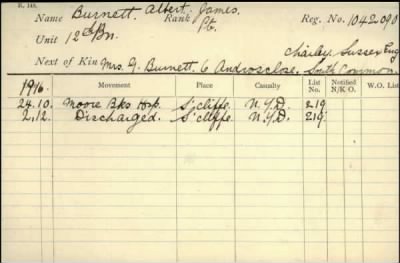 R. 149.
Name Burnett. Albert James. Rank Pt. Reg. No. 1042090
Unit 12th Bn.
Chailey Sussex Eng
Next of Kin Mrs. Burnett. 6 Androsclose, South Common.
1916. Movement Place Casualty List No. Notified N/K O. W.O. List
24.10. Moore Bks Hosp. S'cliffe. N.Y.D. 219
2.12. Discharged. S'cliffe. N.Y.D. 219.